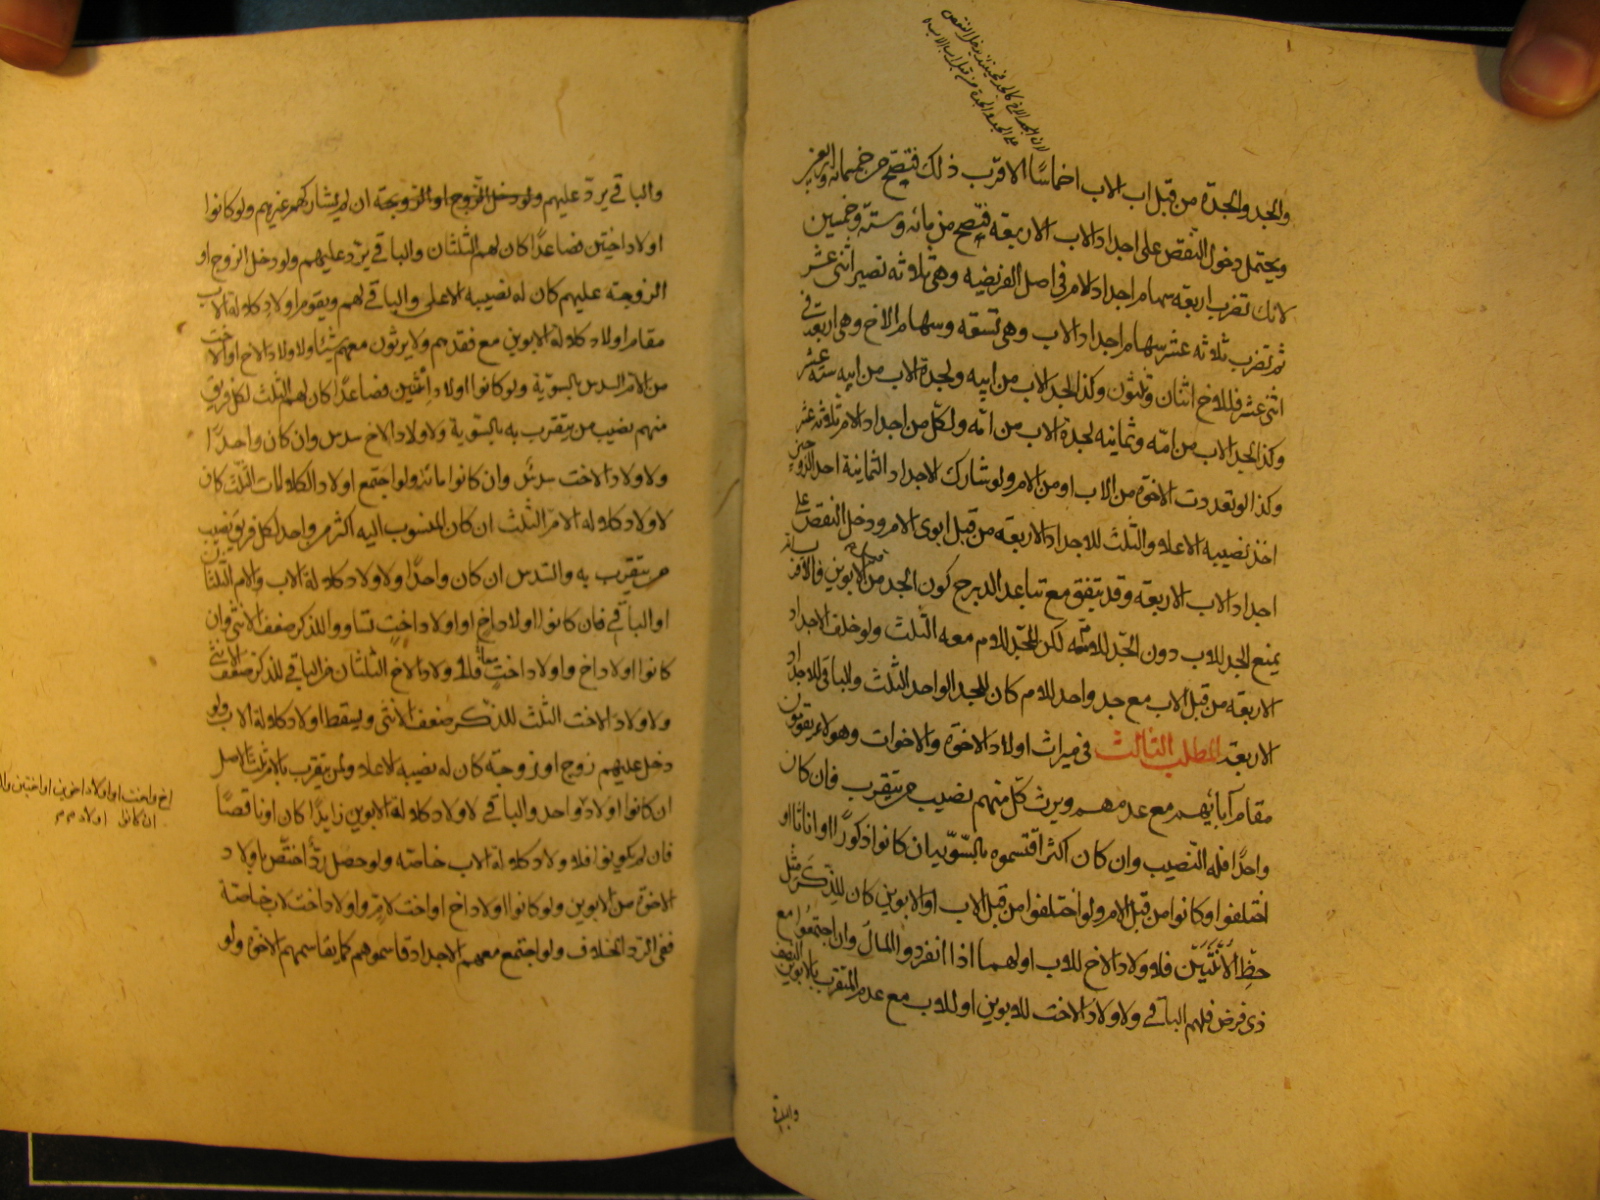 لان الجد الاخ كالجد فحينئذ يدخل النقص
على الجد والجدة من قبل اب الاب
والجد والجدة من قبل اب الاب اخماسًا الاقرب ذلك فتصح من خمسمائة واربعين
ويحتمل دخول النقص على اجداد الاب الاربعة فتصح من مائة وستة وخمسين
لانك تضرب اربعة سهام اجداد الام في اصل الفريضة وهي ثلاثة تصير اثنى عشر
ثم تضرب ثلاثة عشر سهام اجداد الاب وهي تسعة وسهام الاخ وهي اربعة في
اثنى عشر فللاخ اثنان وثلثون وكذا لجد الاب من ابيه ولجدة الاب من ابيه ستة عشر
وكذا لجد الاب من امّه وثمانية لجدة الاب من امّه ولكل من اجداد الام ثلاثة عشر
وكذا لو تعددت الاخوة من الاب او من الام ولو شارك الاجداد الثمانية احد الزوجين
اخذ نصيبه الاعلا والثلث للاجداد الاربعة من قبل ابوى الام ودخل النقص على
اجداد الاب الاربعة وقد يتفق مع تباعد الدرج كون الجد من الابوين فالاقرب
يمنع الجد للاب دون الجد للام لكن للجد للام معه الثلث ولو خلف الاجداد
الاربعة من قبل الاب مع جد واحد للام كان للجد الواحد الثلث والباقي للاجداد
الاربعة المطلب الثالث في ميراث اولاد الاخوة والاخوات وهولاء يقومون
مقام آبائهم مع عدمهم ويرث كل منهم نصيب من يتقرب فان كان
واحدًا فله النصيب وان كان اكثر اقتسموه بالسّويّة ان كانوا ذكورًا او اناثا او
اختلفوا وكانوا من قبل الام ولو اختلفوا من قبل الاب او الابوين كان للذكر مثل
حظّ الانثيين فلاولاد الاخ للاب او لهما اذا انفردوا المال وان اجتمعوا مع
ذى فرض فلهم الباقي ولاولاد الاخت للابوين او للاب مع عدم المتقرب بالابوين النصف
والباقي
والباقي يردّ عليهم ولو دخل الزوج او الزوجة ان لم يشاركهم غيرهم ولو كانوا
اولاد اختين فصاعدًا كان لهم الثلثان والباقي يردّ عليهم ولو دخل الزوج او
الزوجة عليهم كان له نصيبه الاعلى والباقي لهم ويقوم اولاد كلالة الاب
مقام اولاد كلالة الابوين مع فقدهم ولا يرثون معهم شيئا ولاولاد الاخ او الاخت
من الام السدس بالسويّة ولو كانوا اولاد اثنين فصاعدًا كان لهم الثلث لكل فريق
منهم نصيب من يتقرب به بالسّوية ولاولاد الاخ سدس وان كان واحدًا
ولاولاد الاخت سدس وان كانوا مائة ولو اجتمع اولاد الكلالات الثلث كان
لاولاد كلالة الامّ الثلث ان كان المنسوب اليه اكثر من واحد لكل فريق نصيب
من يتقرب به والسدس ان كان واحدًا ولاولاد كلالة الاب والام الثلثان
او الباقي فان كانوا اولاد اخ او اولاد اخت تساووا للذكر ضعف الانثى وان
كانوا اولاد اخ واولاد اخت فلاولاد الاخ الثلثان من الباقي للذكر ضعف الانثى
ولاولاد الاخت الثلث للذكر ضعف الانثى ويسقط اولاد كلالة الاب ولو
دخل عليهم زوج او زوجة كان له نصيبه الاعلا ولمن يتقرب بالام ثلث الاصل
ان كانوا اولاد واحد والباقي لاولاد كلالة الابوين زايدًا كان او ناقصًا
اخ واخت او اولاد اخوين او اختين والا
ان كانوا اولاد
فان لم يكونوا فلاولاد كلالة الاب خاصة ولو حصل ردٌّ اختصّ باولاد
الاخوة من الابوين ولو كانوا اولاد اخ او اخت لام واولاد اخت لاب خاصّة
ففى الرد الخلاف ولو اجتمع معهم الاجداد قاسموهم كما يقاسمهم الاخوة ولو